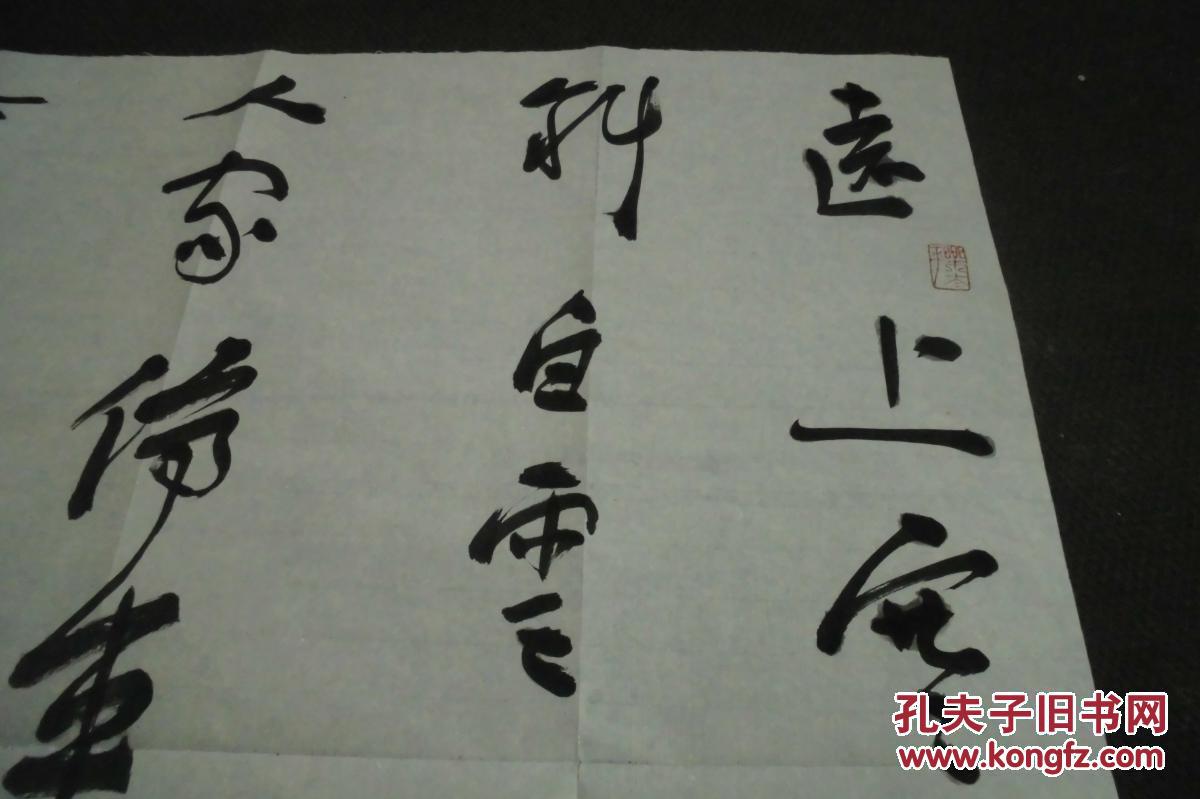 遠上寒
斜白雲
人家停車
孔夫子旧书网
www.kongfz.com